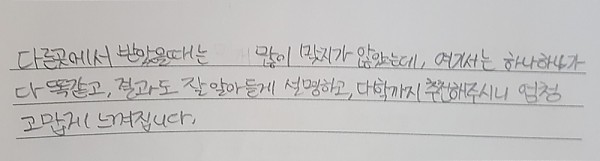 다른곳에서 받았을때는 많이 맞지가 않았는데, 여기서는 하나하나가
다 똑같고, 결과도 잘 알아듣게 설명하고, 대학까지 추천해주시니 엄청
고맙게 느껴집니다.